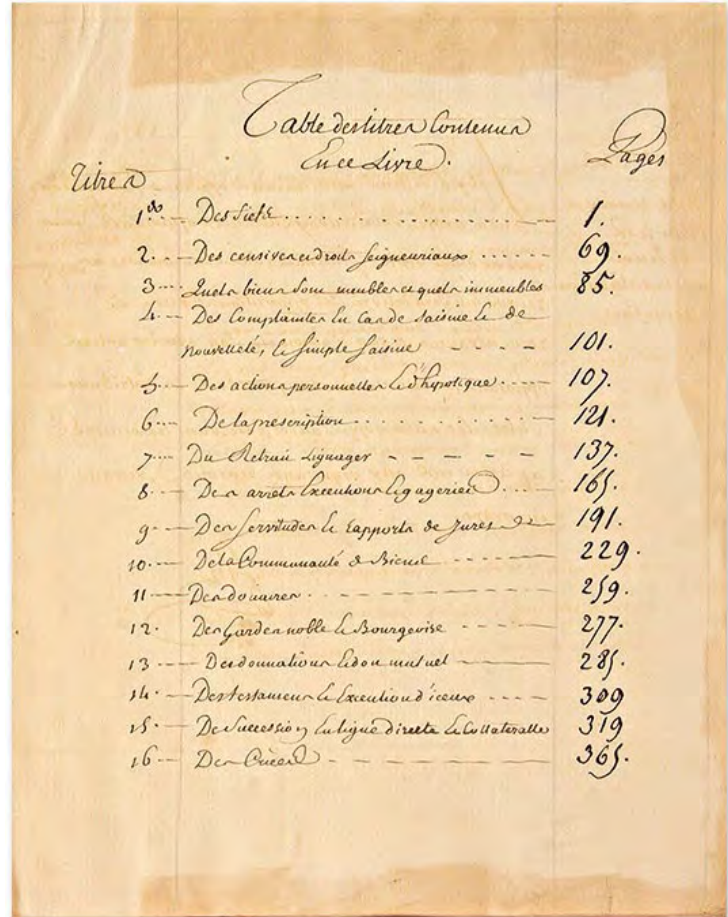 Table des titres Contenus
En ce Livre.
Titres Pages
1. Des fiefs 1.
2. Des censives et droits seigneuriaux 69.
3 Quels biens sont meubles et quels immeubles 85.
4. Des Complaintes En cas de saisine & de
nouvelleté, & simple saisine 101.
5. Des actions personnelles & d'hipoteque 107.
6. De la prescription 121.
7. Du Retrait Lignager 137.
8. Des arrets Executions & gageries 165.
9. Des servitudes & rapports de Jurés 191.
10. De la Communauté de Biens 229.
11 Des douaires 259.
12. Des Gardes noble & Bourgeoise 277.
13 Des donnations & don mutuel 285.
14. Des testamens & Execution d'iceux 309
15. De Succession En ligne directe & Collateralle 319
16 Des Criées 365.